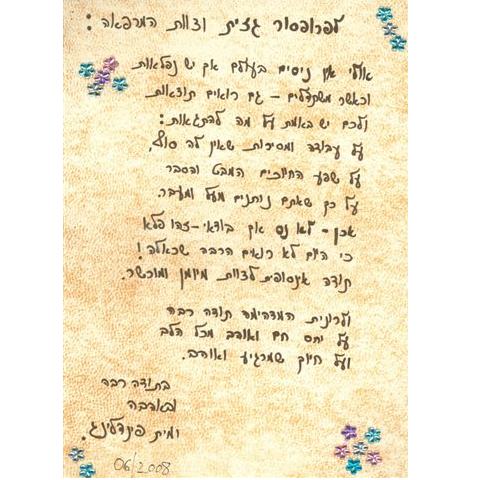 לפרופסור גזית וצוות המרפאה:
אולי אין ניסים בעולם אך יש נפלאות
וכאשר משתדלים – גם רואים תוצאות
ולכם יש באמת על מה להתגאות:
על עבודה ומסירות שאין לה סוף,
על שפע החיוכים המבט והסבר
על כך שאתם נותנים מעל ומעבר.
אכן – לא נס אך בודאי – זהו פלא
כי היום לא רואים הרבה שכאלה!
תודה אינסופית לצוות מיומן ומוכשר.
ולרונית המדהימה תודה רבה
על יחס חם ואוהב מכל הלב
ועל חיוך שמרגיע ואוהב.
בתודה רבה
ובאהבה
פינדלינג.
06/2008